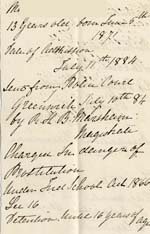 13 Years old born Jan 5th
1871
Date of Admission
July 11th 1884
Sent from Police Court
Greenwich July 10th 84
by R. H. B. Marsham
Magistrate
Charged In danger of
Prostitution
Under Ind School Act 1866
Sec 16
Detention Until 16 years of age